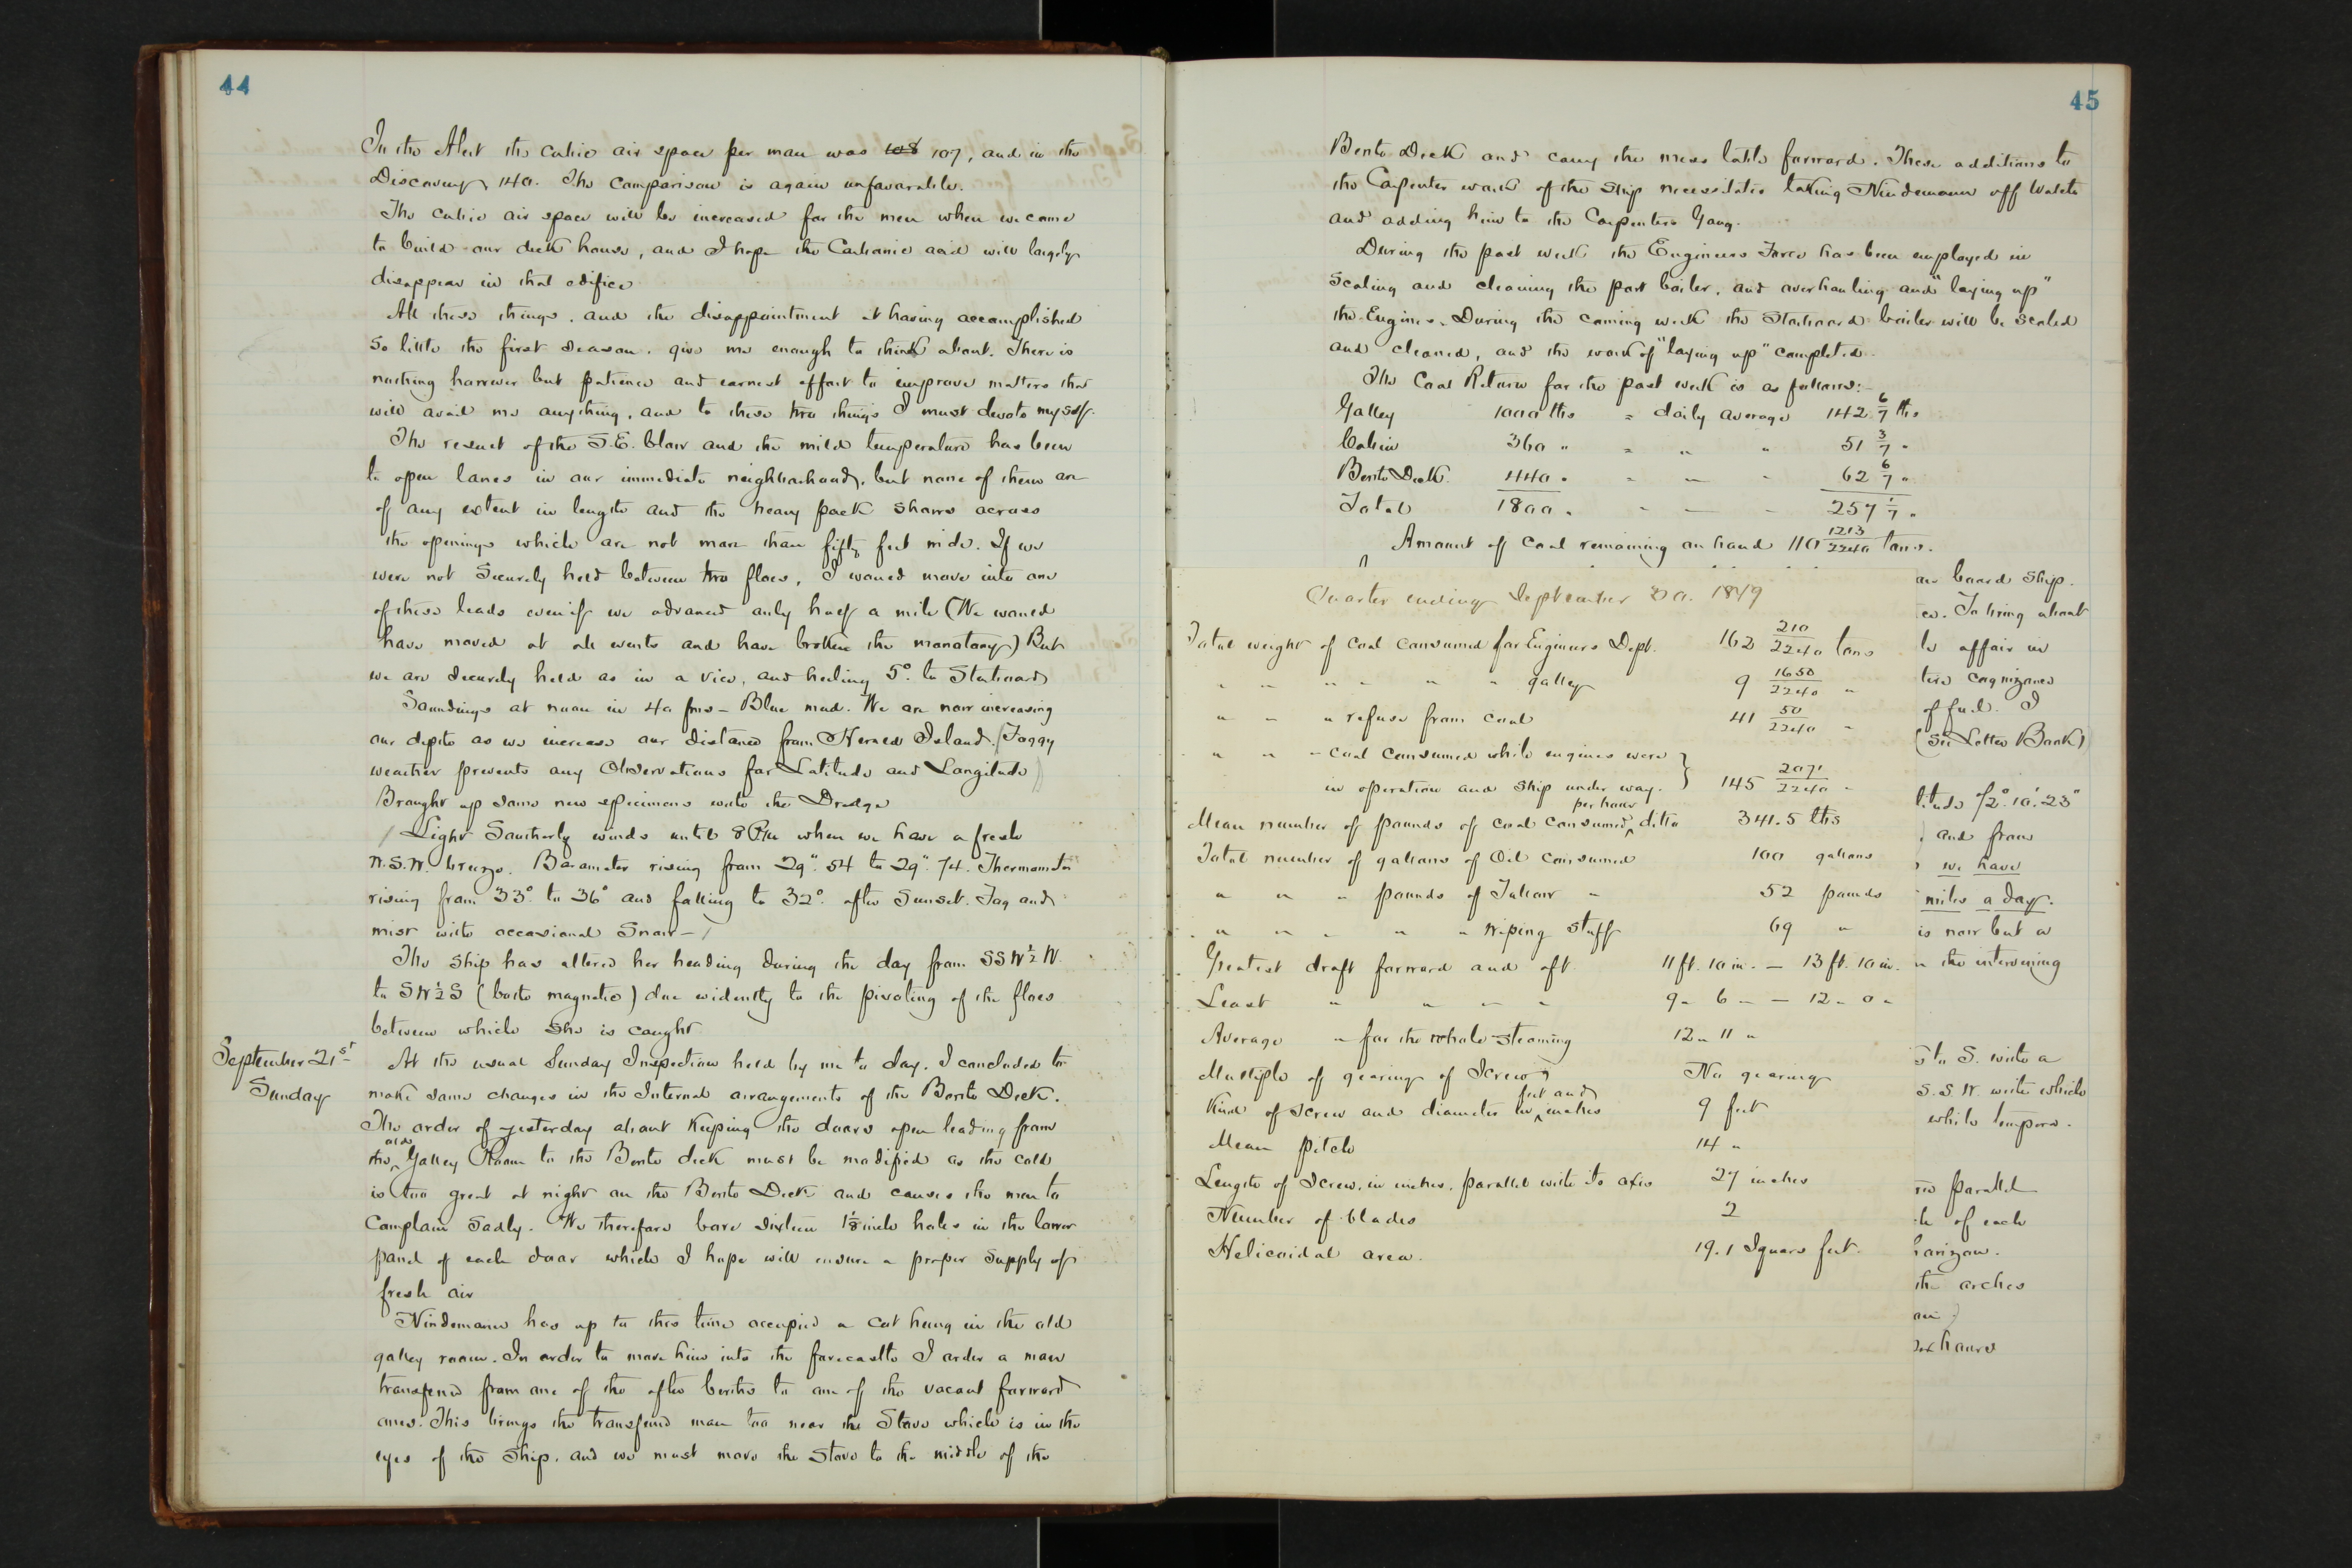 44
In the Alert the cubic air space per man was 108 107, and in the
Discovery 140. The comparison is again unfavorable.
The cubic air space will be increased for the men when we come
to build our deck house, and I hope the Carbonic acid will largely
disappear in that edifice
All these things, and the disappointment at having accomplished
so little the first season, give me enough to think about. There is
nothing however but patience and earnest effort to improve matters that
will avail me anything, and to these two things I must devote myself.
The result of the S.E. blow and the mild temperature has been
to open lanes in our immediate neighborhood, but none of them are
of any extent in length and the heavy pack shows across
the openings which are not more than fifty feet wide. If we
were not Securely held between two floes, I would move into one
of these leads even if we advanced only half a mile (We would
have moved at all events and have broken the monotony) But
we are securely held as in a vice, and heeling 5° to Starboard
Soundings at noon in 40 fms – Blue mud. We are now increasing
our depth as we increase our distance from Herald Island. (Foggy
weather prevents any Observations for Latitude and Longitude)
Brought up some new specimens with the Dredge
Light Southerly winds until 8 P.M. when we have a fresh
W.S.W. breeze. Barometer rising from 29". 54 to 29". 74. Thermometer
rising from 33° to 36° and falling to 32° after Sunset. Fog and
mist with occasional Snow –
The Ship has altered her heading during the day from SSW½W.
to SW½S (both magnetic) due evidently to the pivoting of the floes
between which she is caught
September 21st
Sunday
At the usual Sunday Inspection held by me to day, I concluded to
make some changes in the Internal arrangements of the Berth Deck.
The order of yesterday about Keeping the doors open leading from
the old Galley Room to the Berth deck must be modified as the cold
is too great at night on the Berth Deck and causes the men to
Complain Sadly. We therefore bore sixteen 1⅛ inch holes in the lower
panel of each door which I hope will ensure a proper Supply of
fresh air
Nindemann has up to this time occupied a cot hung in the old
galley room. In order to move him into the forecastle I order a man
transferred from one of the after berths to one of the vacant forward
ones. This brings the transferred man too near the Stove which is in the
eyes of the Ship, and we must move the Stove to the middle of the
45
Berth Deck and carry the mess table forward. These additions to
the Carpenter work of the Ship necessitate taking Nindemann off Watch
and adding him to the Carpenters Gang.
During the past week the Engineers Force has been employed in
Scaling and cleaning the port boiler, and overhauling and "laying up"
the Engines. During the coming week the Starboard boiler will be scaled
and cleaned, and the work of "laying up" completed.
The Coal Return for the past week is as follows:–
Galley 1000 lbs = daily average 142 6/7 lbs
Cabin 360 " = " " 51 3/7 "
Berth Deck. 440 " = " " 62 6/7 "
Total 1800 " " " 257 1/7 "
Amount of Coal remaining on hand 110 1213/2240 tons.
Quarter ending September 30. 1879
Total weight of coal consumed for Engineers Dept. 162 210/2240 tons
" " " " " " galley 9 1650/2240 "
" " " refuse from coal 41 50/2240 "
" " " coal consumed while engines were
in operation and ship under way. } 145 2071/2240 "
Mean number of pounds of coal consumed per hour ditto 341.5 lbs
Total number of gallons of Oil consumed 100 gallons
" " " pounds of Tallow " 52 pounds
" " " " " wiping stuff 69 "
Greatest draft forward and aft. 11 ft. 10 in. – 13 ft. 10 in.
Least " " " " 9 " 6 " – 12 " 0 "
Average " for the whole steaming 12 " 11 "
Multiple of gearing of Screw No gearing
Kind of screw and diameter in feet and inches 9 feet
Mean pitch 14 "
Length of Screw, in inches, parallel with its axis 27 inches
Number of blades 2
Helicoidal area. 19.1 Square feet.
on board Ship.
es. To bring about
le affair in
take cognizance
of fuel. I
(See Letter Book)
titude 72°. 10'. 23"
and from
we have
miles a day.
is now but a
n the intervening
S to S. with a
S.S.W. with which
while tempera-
parallel
of each
horizon.
the arches
hours